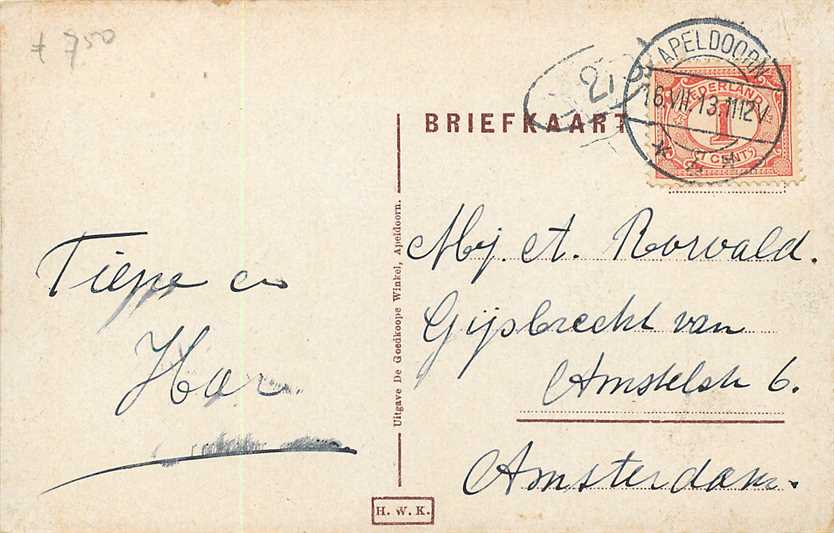 f 750
21
APELDOORN
16.VII.13.11-12V.
NEDERLAND
1
(1 CENT)
BRIEFKAART
Mej. A. Rorvald.
Gijsbrecht van
Amstelstr 6.
Amsterdam.
Tiepe en
Har
Uitgave De Goedkoope Winkel, Apeldoorn.
H. W. K.